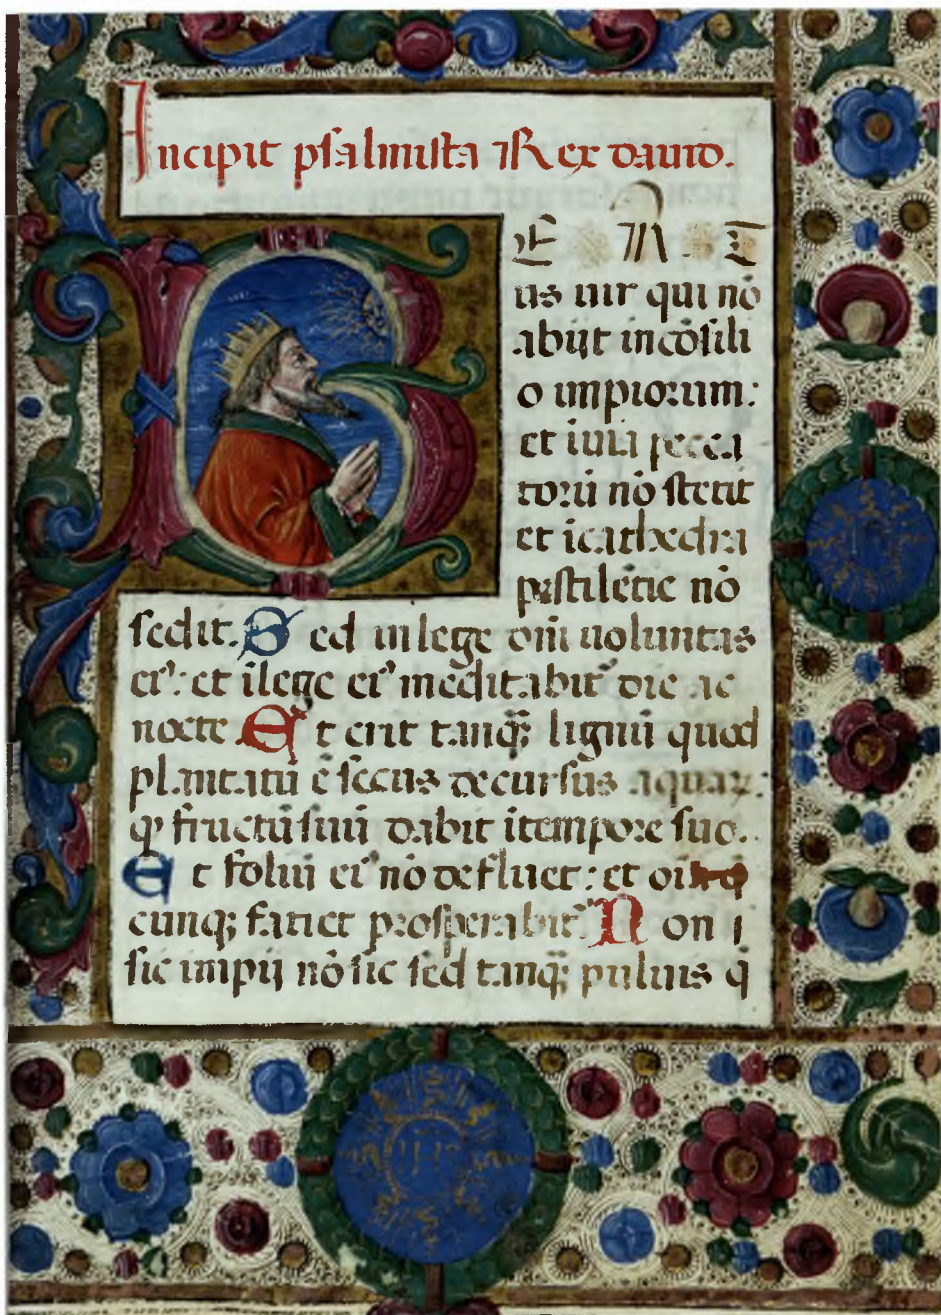 Incipit psalmista ⁊ Rex dauid.
B E A T
us uir qui nō
abijt incōsili
o impiorum:
et iuia pecca
torū nō stetit
et icathedra
pestilētie nō
sedit. S ed inlege dn̄i uoluntas
eiꝰ: et ilege eiꝰ meditabit̄ die ac
nocte E t erit tanq̄ꝫ lignū quod
plantatū ē secus decursus aquaꝝ:
qͥ fructū suū dabit itempore suo.
E t foliū eiꝰ nō defluet: et oīa q̄
cunqꝫ faciet prosperabūt̄. N on i
sic impij nō sic sed tanq̄ꝫ puluis q̄